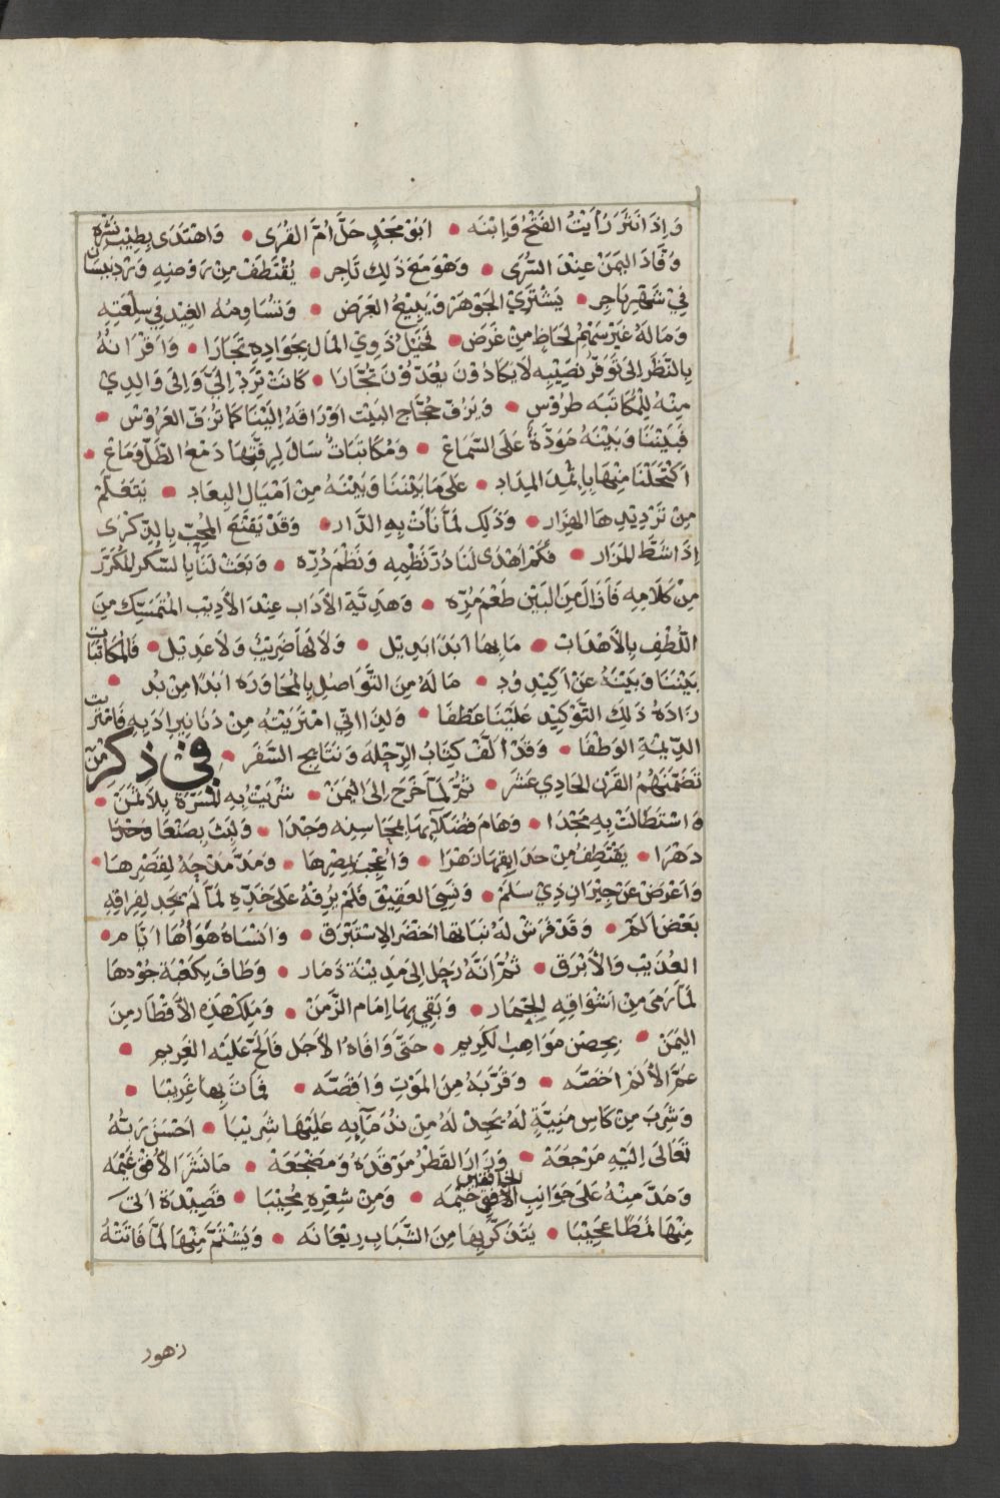 وَإِذَا نَثَرَ رَأَيْتُ الفَتْحَ وَابْنَه • ابُوْ مَجْدٍ حَلَّ أُمَّ القُرَى • وَاهْتَدَى بِطِيْبِ نَشْرِهِ
وُفَّادُ اليَمَنْ عِنْدَ السُّرَى • وَهْوَ مَعَ ذَلِكَ تَاجِر • يُقْتَطَفْ مِنْ رَوضِهِ وَرْد نيسَان
فِيْ شَهْرِ نَاجِر • يَشْتَرِيْ الجَوْهَرْ وَيَبِيْعُ العَرَض • وَتُسَاوِمُه الغِيْد فِي سِلْعَتِهِ
وَمَا لَهُ غَيْر سَهْمِ لحَاظٍ مِنْ غَرَض • ذَوِيْ المَال بِجَوَادِهِ تَجَارَا • وَاقْرَانُهُ
بِالنَّظَر إِلى تَوَفّرُ نَصِيْبِه لَا يَكَادُوْنَ يُعَدُّوْنَ تُجَّارَا • كَانَتْ تَرِدْ إِلَيَّ وَإِلَى وَالِدِيْ
مِنْهُ لِلْمُكَاتَبَه طُرُوْس • وَيَزُفّ حُجَّاج البَيْت اوْرَاقَهُ إِلَيْنَا كَمَا تُزَفّ العَرُوْسْ •
فَبَيْنَنَا وَبَيْنَهُ مَوَدَّةٌ عَلَى السَّمَاعْ • وَمُكَاتَبَاتٌ سَالَ لِرِقَّتِهَا دَمْعُ الطَّلّ وَمَاعْ •
اكْتَحَلْنَا مِنْهَا بِإِثْمِدِ المِدَاد • عَلَى مَا بَيْنَنَا وَبَيْنَهُ مِنْ امْيَالِ البِعَاد • يَتَعَلَّمْ
مِنْ تَرْدِيْدِهَا الهِزَار • وَذَلِكَ لَمَّا نَأَتْ بِهِ الدَّار • وَقَدْ يَقْنَعْ المُحِبّ بِالذِّكْرَى
إِذَا شَطَّ المَزَار • فَكَمْ اهْدَى لَنَا دُرَّ نَظْمِهِ وَنَظْمَ دُرِّه • وَبَعَثْ لَنَا بِالسُّكَّر المُكَرَّر
مِنْ كَلَامِهِ فَأَزَالَ مِنَ البَيْن طَعْمَ مُرِّه • وَهَدِيَّة الآدَاب عِنْدَ الأَدِيْب المُتَمَسِّك مِنَ
اللُّطْفِ بِالأَهْدَاب • مَا بِهَا ابَدًا بَدِيْل • وَلَا لَهَا ضَرِيْبٌ وَلَا عَدِيْل • فَالمُكَاتَبَات
بَيْنَنَا وَبَيْنَهُ عَنْ اكِيْدِ وُد • مَا لَهُ مِنَ التَّوَاصُلِ بِالمُحَاوَرَه ابَدًا مِنْ بُد •
زَادَهُ ذَلِكَ التَّوْكِيْد عَلَيْنَا عَطْفَا • وَلِذَا انِّي امْتَرَيْتُه مِنْ دَنَانِيْرِ ادَبِهِ فَامْتَرَت
الدِّيْمَةِ الوَطْفَا • وَقَدْ الَّفْ كِتَابُ الرِّحْلَه وَنَتَايِج السَّفَر • فِي ذِكْر مَنْ
تَضَمَّنَهُمُ القَرْن الحَادِي عَشَر • ثُمَّ لَمَّا خَرَجَ إِلَى اليَمَنْ • شُرِيَتْ بِهِ المَسَرَّة بِلَا ثَمَنْ •
وَاسْتَطَالَتْ بِهِ مَجْدَا • وَهَامَ فُضَلَآئِهَا بِمَحَاسِنِه وَجْدَا • وَلَبِثَ بِصَنْعَا وَحْدَهَا
دَهْرَا • يَقْتَطِفُ مِنْ حَدَايِقِهَا زَهْرَا • وَاعْجَبَ بِمِصْرِهَا • وَمَدَّ مَدْحَهُ لِقَصْرِهَا •
وَاعْرَضْ عَنْ جِيْرَانِ ذِيْ سَلَمْ • وَنَسِيَ العَقِيْقَ فَلَمْ يُرِقْهُ عَلَى خَدِّهِ لَمَّا لَمْ يَجِد لِفِرَاقِهِ
بَعْضَ أَلَمْ • وَقَدْ فَرَشْ لَهُ نَبَاتهَا اخْضَرَ الإِسْتَبْرَق • وَانْسَاهُ هَوَاُهَا ايَّام •
العُذَيْب وَالأَبْرَق • ثُمَّ انَّهُ رَحَل إِلَى مَدِيْنَة ذَمَار • وَطَافَ بِكَعْبَة جُوْدِهَا
لَمَّا رَمَى مِنْ اشْوَاقِهِ الجِمَار • وَبَقِيَ بِهَا إِمَام الزَّمَنْ • وَمَلِكْ هَذِهِ الأَقْطَار مِنَ
اليَمَنْ • بِحِصْن مَوَاهِبْ الكَرِيم • حَتَّى وَافَاهُ الأَجَل فَأَلَحّ عَلَيْهِ الغَرِيم •
عَمَّ الأَلَمْ اخَصَّه • وَقَرَّبَهُ مِنَ المَوْتِ وَاقَصَّه • فَمَاتَ بِهَا غَرِيْبَا •
وَشَرِبَ مِنْ كَاسِ مَنِيَّةٍ لَمْ يَجِدْ لَهُ مِنْ نُدَمَآئِهِ عَلَيْهَا شَرِيْبَا • احْسَنَ رَبُّهُ
تَعَالَى إِلَيْهِ مَرْجَعَهْ • وَزَارَ القَطْرُ مَرْقَدَهُ وَمَضْجَعَهْ • مَا نَشَرَ الأُفقْ غَيْمَه
وَمَدَّ مِنْهُ عَلَى جَوَانِبِ الأفق الخافقين خَيْمَه • وَمِنْ شِعْرِهِ مُجِيْبَا • قَصِيْدَة اتَى
مِنْهَا نَمَطًا عَجِيْبَا • يَتَذَكَّر بِهَا مِنَ الشَّبَابِ رَيْعَانَه • وَيَشْتَمّ مِنْهَا لَمَّا فَاتَتْهُ
زهور